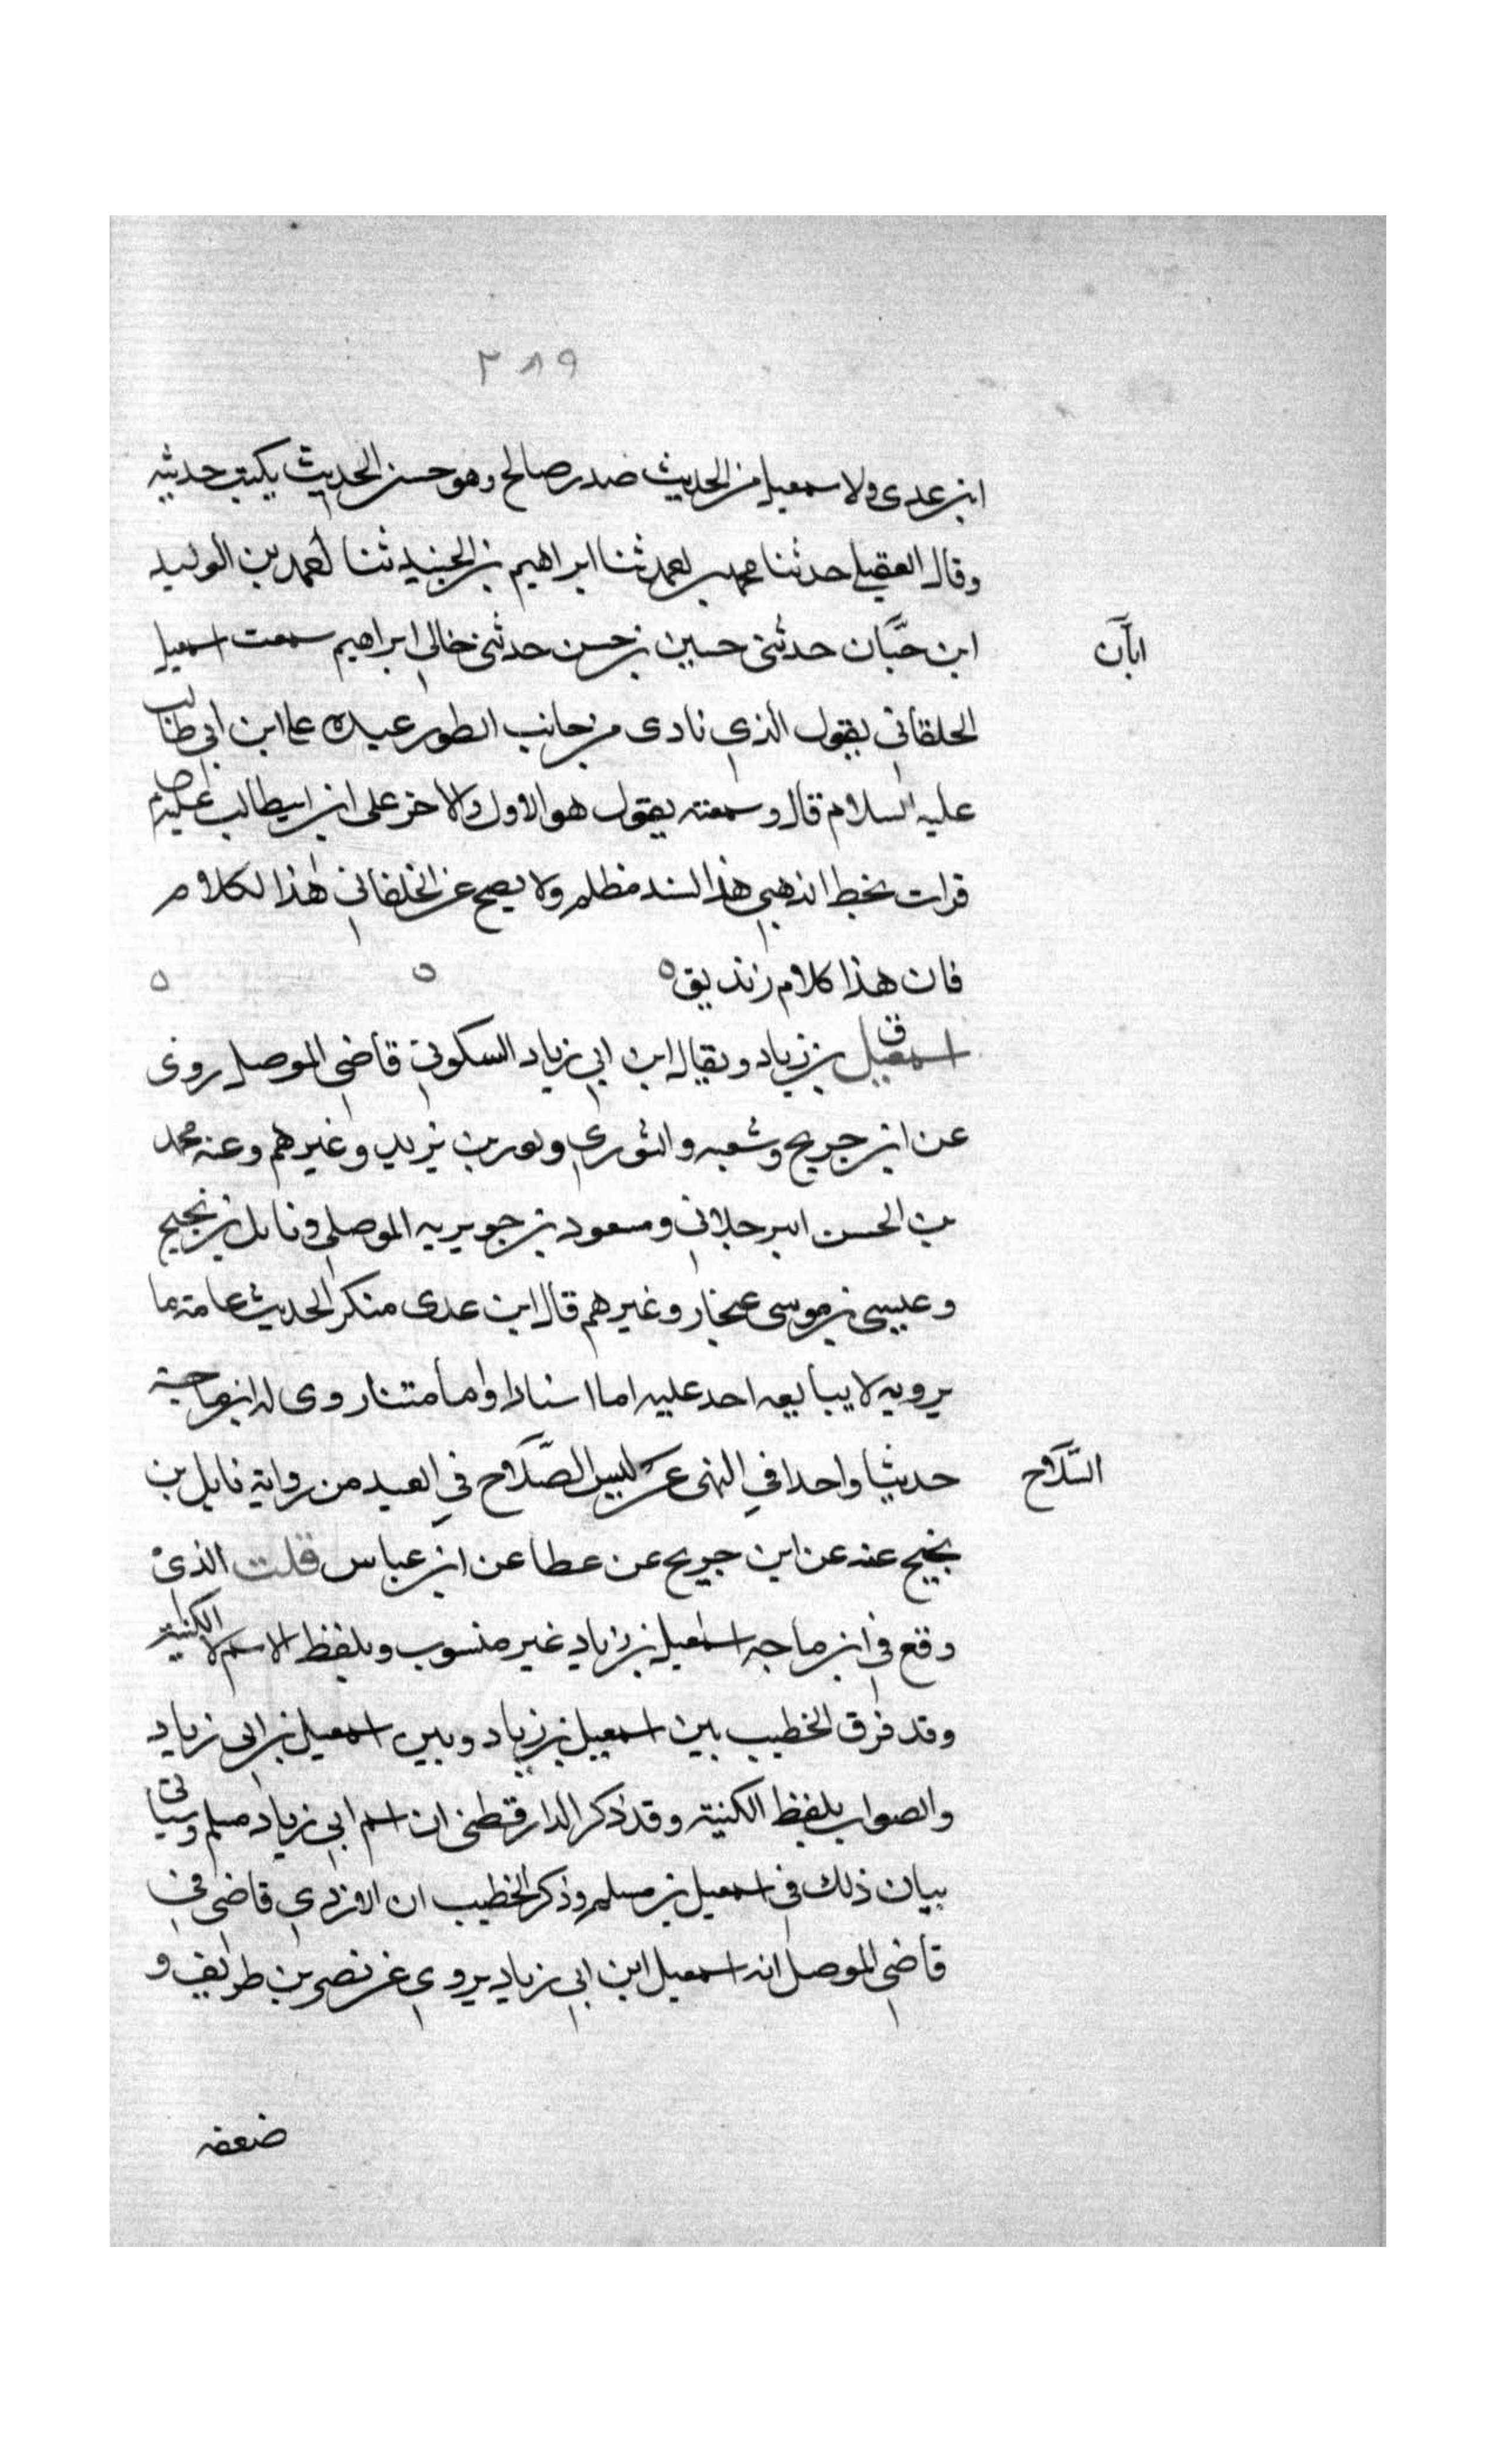 ٢٨٩
ابن عدى ولاسمعيل من الحديث صدر صالح وهو حسن الحديث يكتب حديثه
وقال العقيلى حدثنا محمد بن احمد ثنا ابراهيم بن الجنيد ثنا احمد بن الوليد
ابن حبَّان حدثنى حسين بن حسن حدثنى خالى ابراهيم سمعت اسمعيل
ابآن
الخلقانى يقول الذي نادى من جانب الطور عبده على ابن ابي طالب
عليه السلام قال وسمعته يقول هو الاول والاخر على ابن ابيطالب عليه
قرات بخط الذهبي هذا السند مظلم ولا يصح عن الخلقاني هذا الكلام
فان هذا كلام زنديق ٥ ٥ ٥
ق
اسمعيل بن زياد ويقال ابن ابي زياد السكوني قاضي الموصل روى
عن ابن جريج وشعبه والثوري وثور بن يزيد وغيرهم وعنه محمد
بن الحسن البرجلاني ومسعود بن جويريه الموصلي ونايل بن نجيح
وعيسى بن موسى غنجار وغيرهم قال ابن عدى منكر الحديث عامة ما
يرويه لا يتابعه احد عليه اما اسنادا واما متنا روى له ابن ماجة
حديثا واحدا في النهى عن لبس الصَّلاح في العيد من رواية نايل بن
السَّلاح
نجيح عنه عن ابن جريج عن عطا عن ابن عباس قلت الذي
وقع في ابن ماجه اسمعيل بن زياد غير منسوب وبلفظ الاسم لا الكنية
وقد فرق الخطيب بين اسمعيل بن زياد وبين اسمعيل بن ابى زياد
والصواب بلفظ الكنية وقد ذكر الدارقطنى ان اسم ابي زياد مسلم وسياتى
بيان ذلك فى اسمعيل بن مسلم وذكر الخطيب ان الازدي قاضي في
قاضي الموصل انه اسمعيل ابن ابي زياد يروي عن نصر بن طريف و
ضعفه